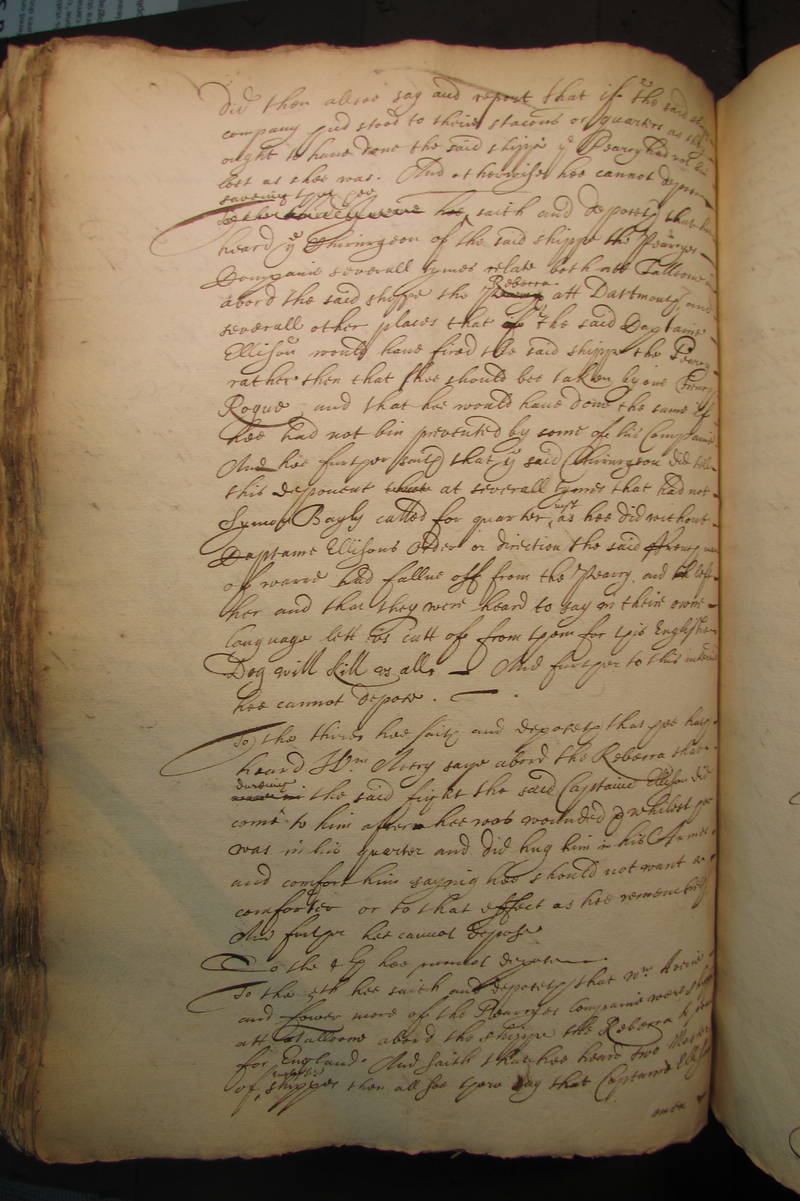 did then alsoe say and report that if the said
company had stood to theire stacons or quarters as they
ought to have done the said shipp ye Pearry had not bin
lost as shee was. And otherwise hee cannot depose
saveing
hee saith and deposeth that hee
heard ye Chirurgeon of the said shippe the Pearryes
Companie severall tymes relate both att Falloone
Rebecca
abord the said shippe the att Dartmouth and
severall other places that the said Captaine
Ellison would have fired the said shipp the Pearry
rather then that shee should bee taken by one French
Rogue, and that hee would have done the same if
hee had not bin prevented by some of his Companie
And hee further saith that ye said Chirurgeon did tell
this deponent at severall tymes that had not
Symon Bayly called for quarter, as hee did without
Captaine Ellisons Order or direction the said French men
of warre had fallne off from the Pearry, and left
her and that they were heard to say in theire owne
language lett us cutt off from them for this English
Dog will kill us all. And further to this
hee cannot depose.
To the third hee saith and deposeth that hee hath
heard Wm Avery saye abord the Rebecca that
dureing
the said fight the said Captaine Ellison did
come to him after hee was wounded whilest hee
was in his quarter and did hug him in his Armes
and comfort him saynig hee should not want a
comforter or to that effect as hee remembreth
And further hee cannot depose
To the 4th hee cannot depose
To the 5th hee saith and deposeth that Wm Averie
and fower more of the Pearryes Companie were
att Falloone abord the shippe the Rebecca
for England. And saith that hee heard two
of shippes then allsoe there say that Captaine Ellison